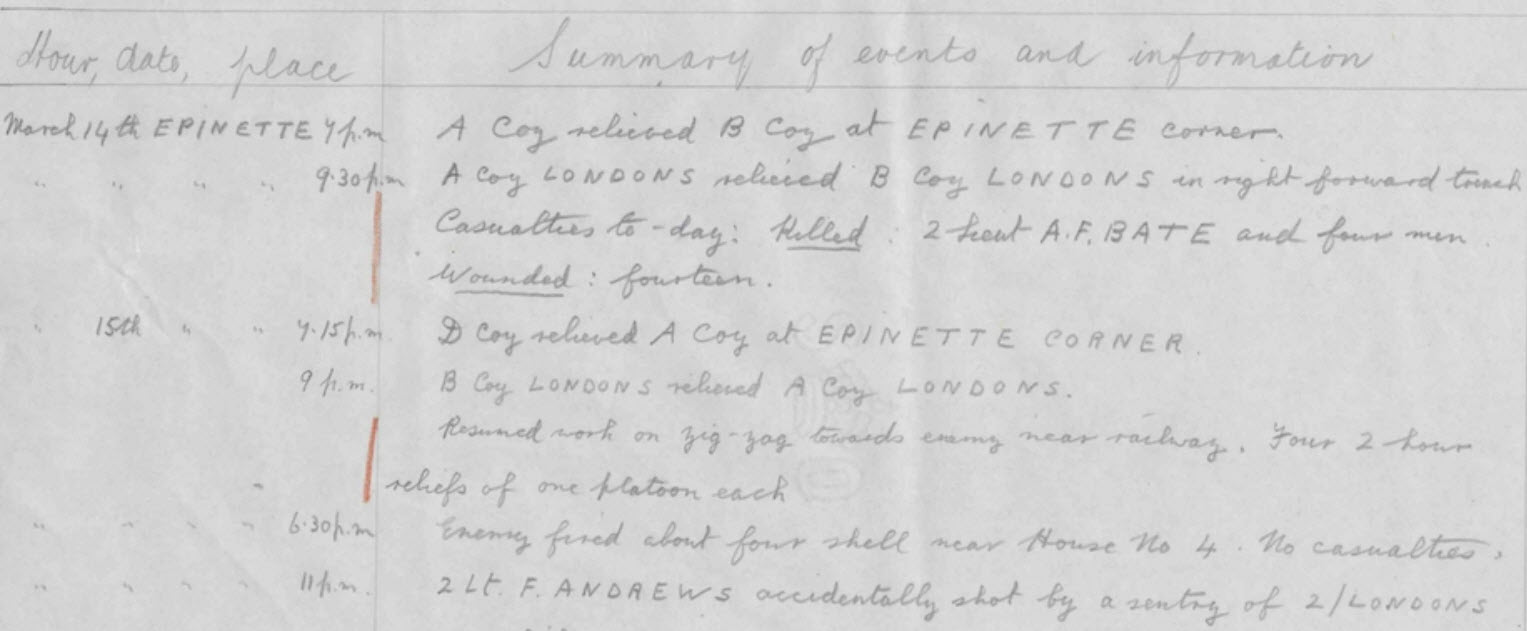 Hour, date, place Summary of events and information
March 14th EPINETTE 7 p.m A Coy relieved B Coy at EPINETTE corner.
" " " " 9.30 p.m A Coy LONDONS relieved B Coy LONDONS in right forward trench
Casualties to-day: Killed : 2 Lieut A.F. BATE and four men.
Wounded : fourteen.
" 15th " " 7.15 p.m. D Coy relieved A Coy at EPINETTE CORNER.
9 p.m. B Coy LONDONS relieved A Coy LONDONS.
Resumed work on zig-zag towards enemy near railway. Four 2 hour
" reliefs of one platoon each
" " " " 6.30 p.m Enemy fired about four shell near House No 4. No casualties.
" " " " 11 p.m. 2 Lt. F. ANDREWS accidentally shot by a sentry of 2/LONDONS